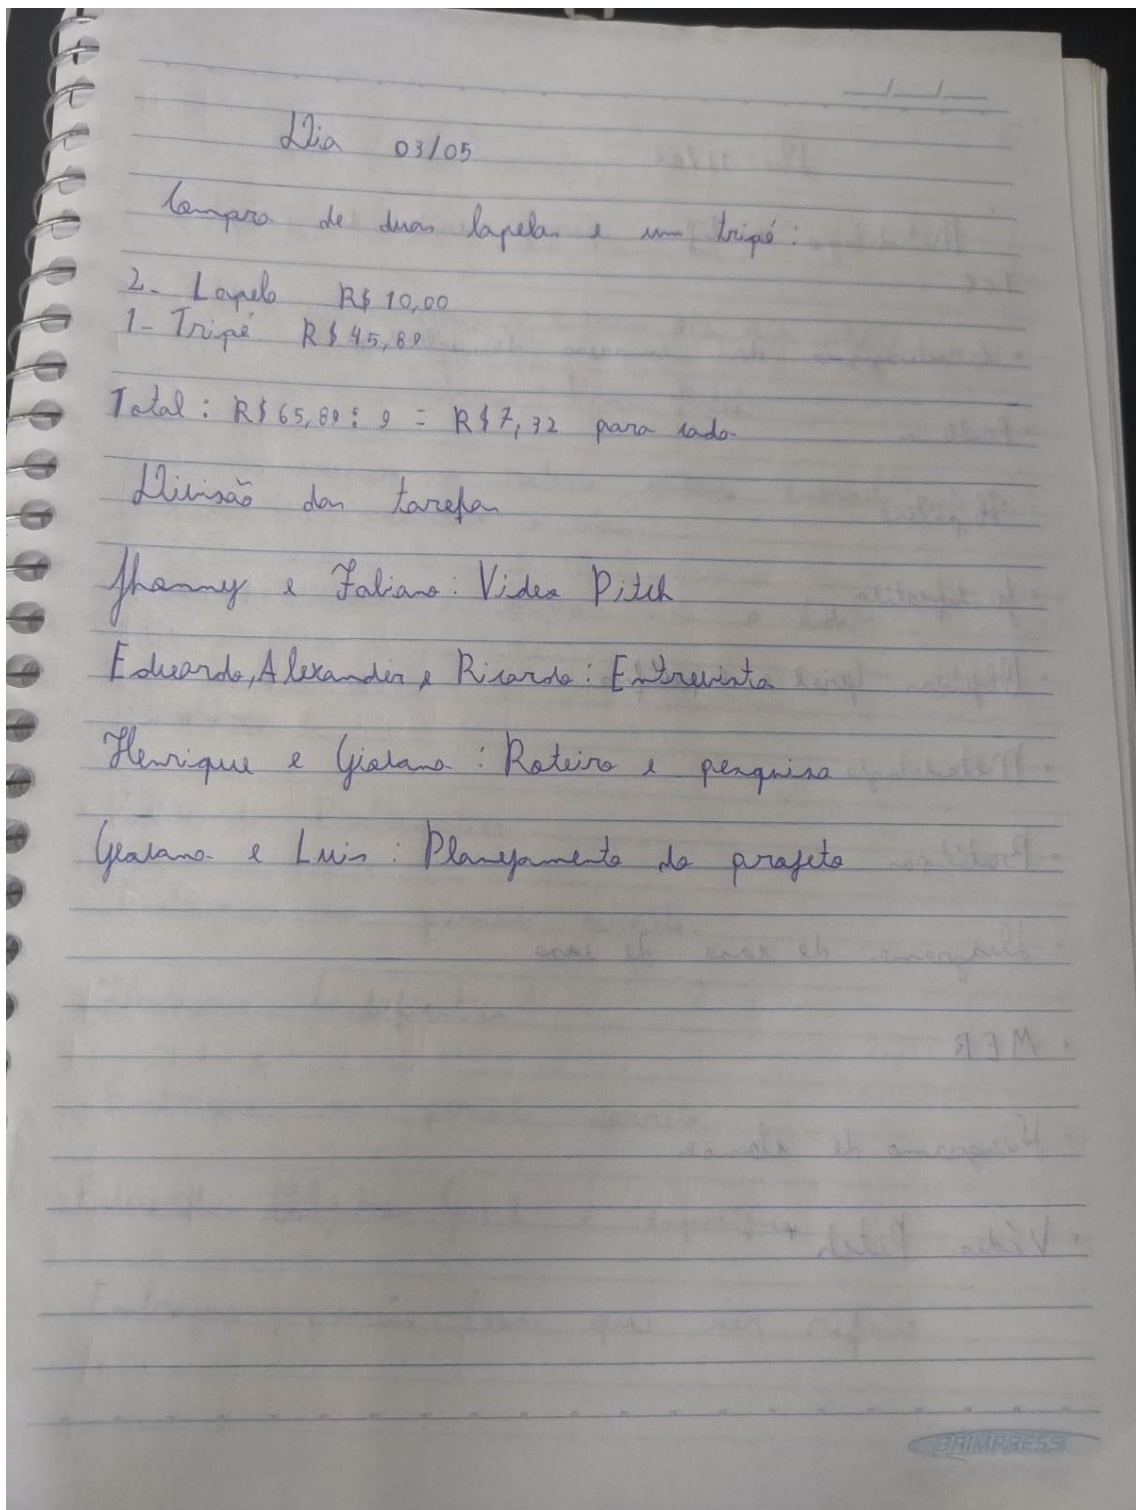 Dia 03/05
Compra de duas lapelas e um tripé:
2- Lapela R$ 10,00
1- Tripé R$ 45,89
Total: R$ 65,89 : 9 = R$ 7,32 para cada
Divisão das tarefas
Jhonny e Fabiano: Video Pitch
Eduardo, Alexander e Ricardo: Entrevista
Henrique e Giovana: Roteiro e pesquisa
Geovana e Luis: Planejamento do projeto
BRIMPRESS